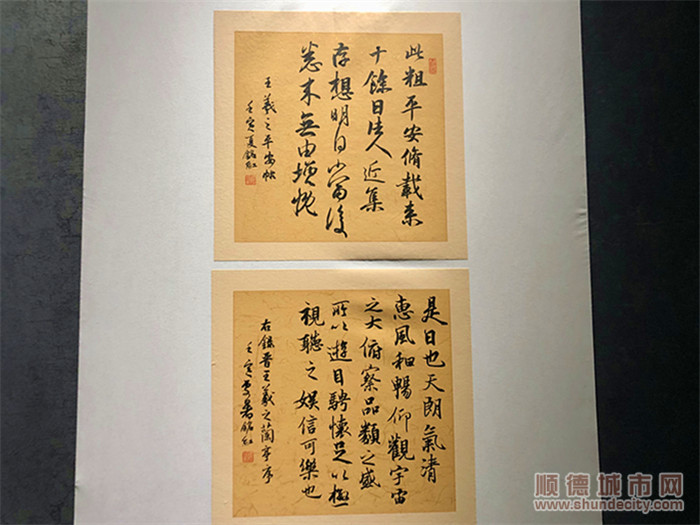 此粗平安脩載來
十餘日諸人近集
存想明日當復
悉來無由增慨
王羲之平安帖
壬寅夏銘紅
是日也天朗氣清
惠風和暢仰觀宇宙
之大俯察品類之盛
所以遊目騁懷足以極
視聽之娛信可樂也
右錄晉王羲之蘭亭序
壬寅暑銘紅
顺德城市网
www.shundecity.com